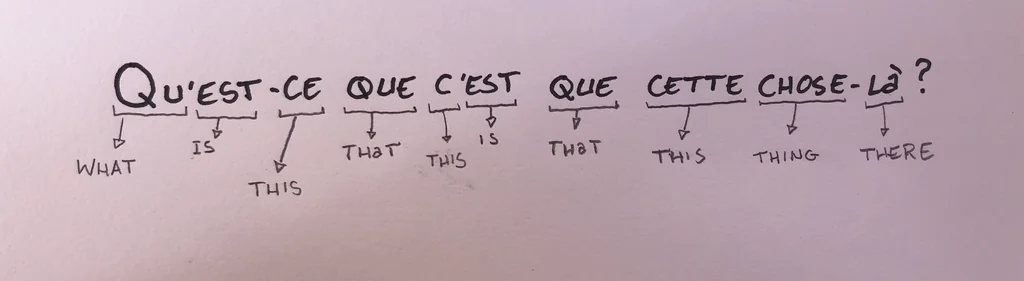 QU'EST-CE QUE C'EST QUE CETTE CHOSE-Là?
WHAT IS THIS THAT THIS IS THAT THIS THING THERE